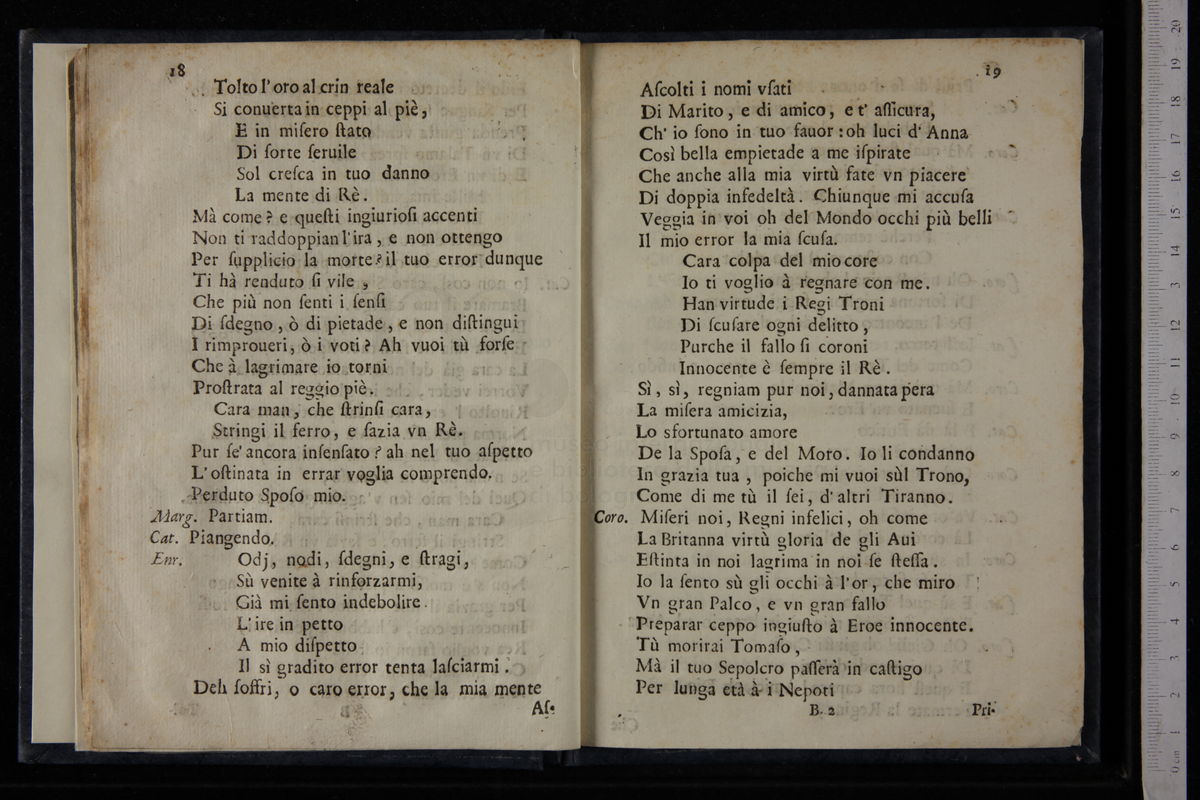 18
Tolto l'oro al crin reale
Si conuerta in ceppi al piè,
E in miſero ſtato
Di ſorte ſeruile
Sol creſca in tuo danno
La mente di Rè.
Mà come? e queſti ingiurioſi accenti
Non ti raddoppian l'ira, e non ottengo
Per ſupplicio la morte? il tuo error dunque
Ti hà renduto ſi vile,
Che più non ſenti i ſenſi
Di ſdegno, ò di pietade, e non diſtingui
I rimproueri, ò i voti? Ah vuoi tù forſe
Che à lagrimare io torni
Proſtrata al reggio piè.
Cara man, che ſtrinſi cara,
Stringi il ferro, e ſazia vn Rè.
Pur ſe' ancora inſenſato? ah nel tuo aſpetto
L'oſtinata in errar voglia comprendo.
Perduto Spoſo mio.
Marg. Partiam.
Cat. Piangendo.
Enr. Odj, nodi, ſdegni, e ſtragi,
Sù venite à rinforzarmi,
Già mi ſento indebolire.
L'ire in petto
A mio diſpetto
Il sì gradito error tenta laſciarmi.
Deh ſoffri, o caro error, che la mia mente
Aſ-
19
Aſcolti i nomi vſati
Di Marito, e di amico, e t' aſſicura,
Ch' io ſono in tuo fauor: oh luci d' Anna
Così bella empietade a me iſpirate
Che anche alla mia virtù fate vn piacere
Di doppia infedeltà. Chiunque mi accuſa
Veggia in voi oh del Mondo occhi più belli
Il mio error la mia ſcuſa.
Cara colpa del mio core
Io ti voglio à regnare con me.
Han virtude i Regi Troni
Di ſcuſare ogni delitto,
Purche il fallo ſi coroni
Innocente è ſempre il Rè.
Sì, sì, regniam pur noi, dannata pera
La miſera amicizia,
Lo sfortunato amore
De la Spoſa, e del Moro. Io li condanno
In grazia tua, poiche mi vuoi sùl Trono,
Come di me tù il ſei, d' altri Tiranno.
Coro. Miſeri noi, Regni infelici, oh come
La Britanna virtù gloria de gli Aui
Eſtinta in noi lagrima in noi ſe ſteſſa.
Io la ſento sù gli occhi à l'or, che miro
Vn gran Palco, e vn gran fallo
Preparar ceppo ingiuſto à Eroe innocente.
Tù morirai Tomaſo,
Mà il tuo Sepolcro paſſerà in caſtigo
Per lunga età à i Nepoti
B 2
Pri-